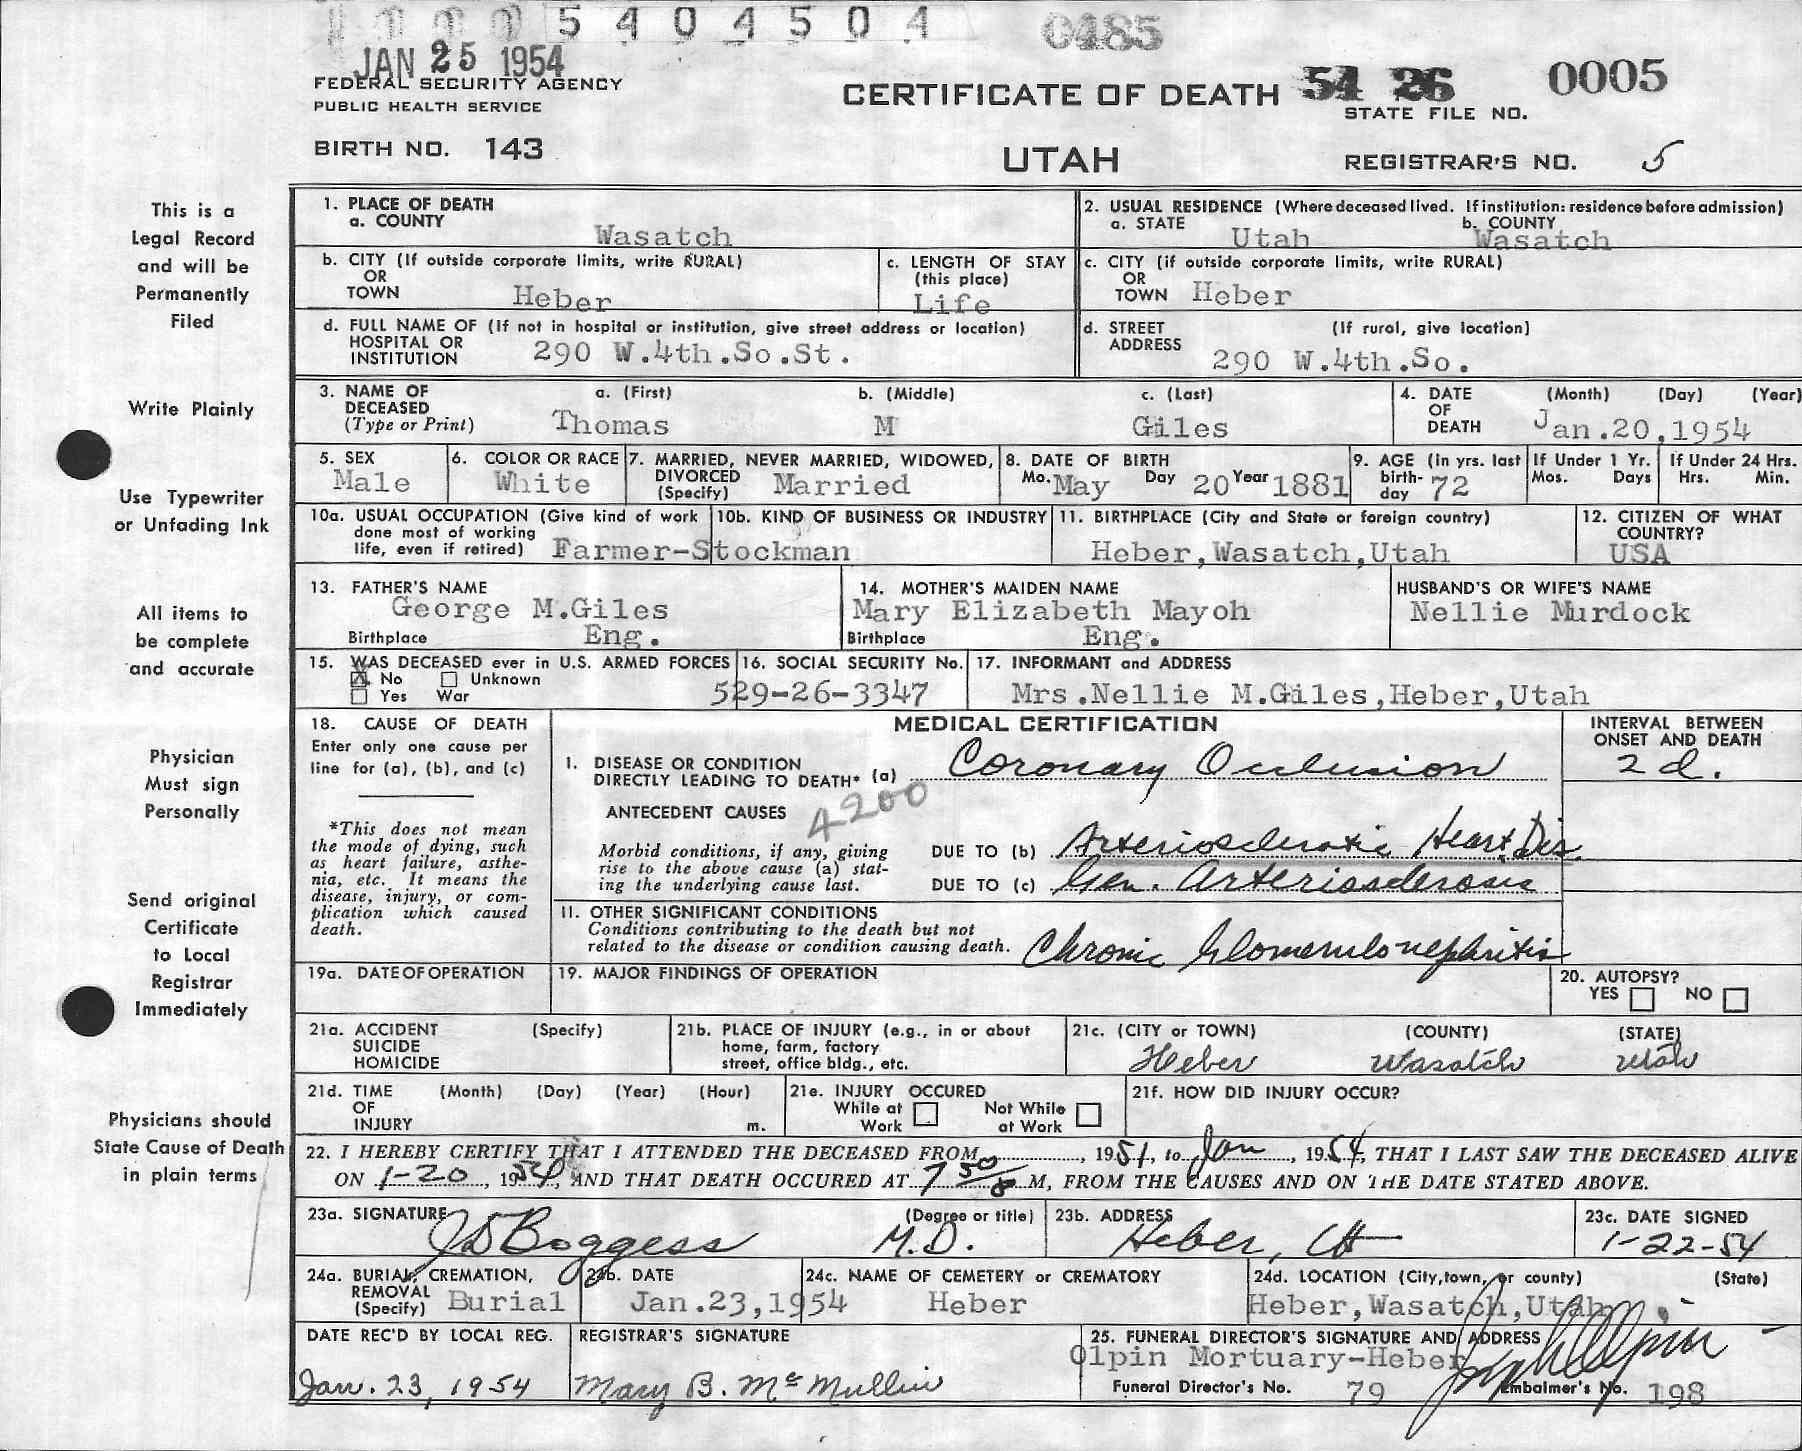 5 4 0 4 5 0 4 0485
JAN 25 1954
FEDERAL SECURITY AGENCY
PUBLIC HEALTH SERVICE
CERTIFICATE OF DEATH 54 26 0005
STATE FILE NO.
BIRTH NO. 143 UTAH REGISTRAR'S NO. 5
This is a
Legal Record
and will be
Permanently
Filed
Write Plainly
Use Typewriter
or Unfading Ink
All items to
be complete
and accurate
Physician
Must sign
Personally
Send original
Certificate
to Local
Registrar
Immediately
Physicians should
State Cause of Death
in plain terms
1. PLACE OF DEATH
a. COUNTY Wasatch
2. USUAL RESIDENCE (Where deceased lived. If institution: residence before admission)
a. STATE Utah b. COUNTY Wasatch
b. CITY (If outside corporate limits, write RURAL)
OR
TOWN Heber
c. LENGTH OF STAY
(this place)
Life
c. CITY (if outside corporate limits, write RURAL)
OR
TOWN Heber
d. FULL NAME OF (If not in hospital or institution, give street address or location)
HOSPITAL OR
INSTITUTION 290 W.4th.So.St.
d. STREET (If rural, give location)
ADDRESS 290 W.4th.So.
3. NAME OF DECEASED (Type or Print)
a. (First) b. (Middle) c. (Last)
Thomas M Giles
4. DATE OF DEATH (Month) (Day) (Year)
Jan.20,1954
5. SEX
Male
6. COLOR OR RACE
White
7. MARRIED, NEVER MARRIED, WIDOWED,
DIVORCED
(Specify) Married
8. DATE OF BIRTH
Mo. May Day 20 Year 1881
9. AGE (In yrs. last
birth-
day 72
If Under 1 Yr.
Mos. Days
If Under 24 Hrs.
Hrs. Min.
10a. USUAL OCCUPATION (Give kind of work
done most of working
life, even if retired) Farmer-Stockman
10b. KIND OF BUSINESS OR INDUSTRY
11. BIRTHPLACE (City and State or foreign country)
Heber,Wasatch,Utah
12. CITIZEN OF WHAT
COUNTRY?
USA
13. FATHER'S NAME
George M.Giles
Birthplace Eng.
14. MOTHER'S MAIDEN NAME
Mary Elizabeth Mayoh
Birthplace Eng.
HUSBAND'S OR WIFE'S NAME
Nellie Murdock
15. WAS DECEASED ever in U.S. ARMED FORCES
X No Unknown
Yes War
16. SOCIAL SECURITY No.
529-26-3347
17. INFORMANT and ADDRESS
Mrs.Nellie M.Giles,Heber,Utah
18. CAUSE OF DEATH
Enter only one cause per
line for (a), (b), and (c)
*This does not mean
the mode of dying, such
as heart failure, asthe-
nia, etc. It means the
disease, injury, or com-
plication which caused
death.
MEDICAL CERTIFICATION
INTERVAL BETWEEN
ONSET AND DEATH
I. DISEASE OR CONDITION
DIRECTLY LEADING TO DEATH* (a) Coronary Occlusion 2 d.
ANTECEDENT CAUSES 4200
Morbid conditions, if any, giving
rise to the above cause (a) stat-
ing the underlying cause last.
DUE TO (b) Arteriosclerotic Heart Dis.
DUE TO (c) Gen. Arteriosclerosis
II. OTHER SIGNIFICANT CONDITIONS
Conditions contributing to the death but not
related to the disease or condition causing death. Chronic Glomerulonephritis
19a. DATE OF OPERATION
19. MAJOR FINDINGS OF OPERATION
20. AUTOPSY?
YES NO
21a. ACCIDENT (Specify)
SUICIDE
HOMICIDE
21b. PLACE OF INJURY (e.g., in or about
home, farm, factory
street, office bldg., etc.
21c. (CITY or TOWN) (COUNTY) (STATE)
Heber Wasatch Utah
21d. TIME (Month) (Day) (Year) (Hour)
OF
INJURY m.
21e. INJURY OCCURED
While at Not While
Work at Work
21f. HOW DID INJURY OCCUR?
22. I HEREBY CERTIFY THAT I ATTENDED THE DECEASED FROM , 1951, to Jan , 1954, THAT I LAST SAW THE DECEASED ALIVE
ON 1-20, 1954, AND THAT DEATH OCCURED AT 7 50 M, FROM THE CAUSES AND ON THE DATE STATED ABOVE.
23a. SIGNATURE (Degree or title)
JD Boggess M.D.
23b. ADDRESS
Heber, Ut
23c. DATE SIGNED
1-22-54
24a. BURIAL, CREMATION,
REMOVAL
(Specify) Burial
24b. DATE
Jan.23,1954
24c. NAME OF CEMETERY or CREMATORY
Heber
24d. LOCATION (City, town, or county) (State)
Heber,Wasatch,Utah
DATE REC'D BY LOCAL REG.
Jan. 23, 1954
REGISTRAR'S SIGNATURE
Mary B. McMullin
25. FUNERAL DIRECTOR'S SIGNATURE AND ADDRESS
Olpin Mortuary-Heber
Funeral Director's No. 79 Embalmer's No. 198